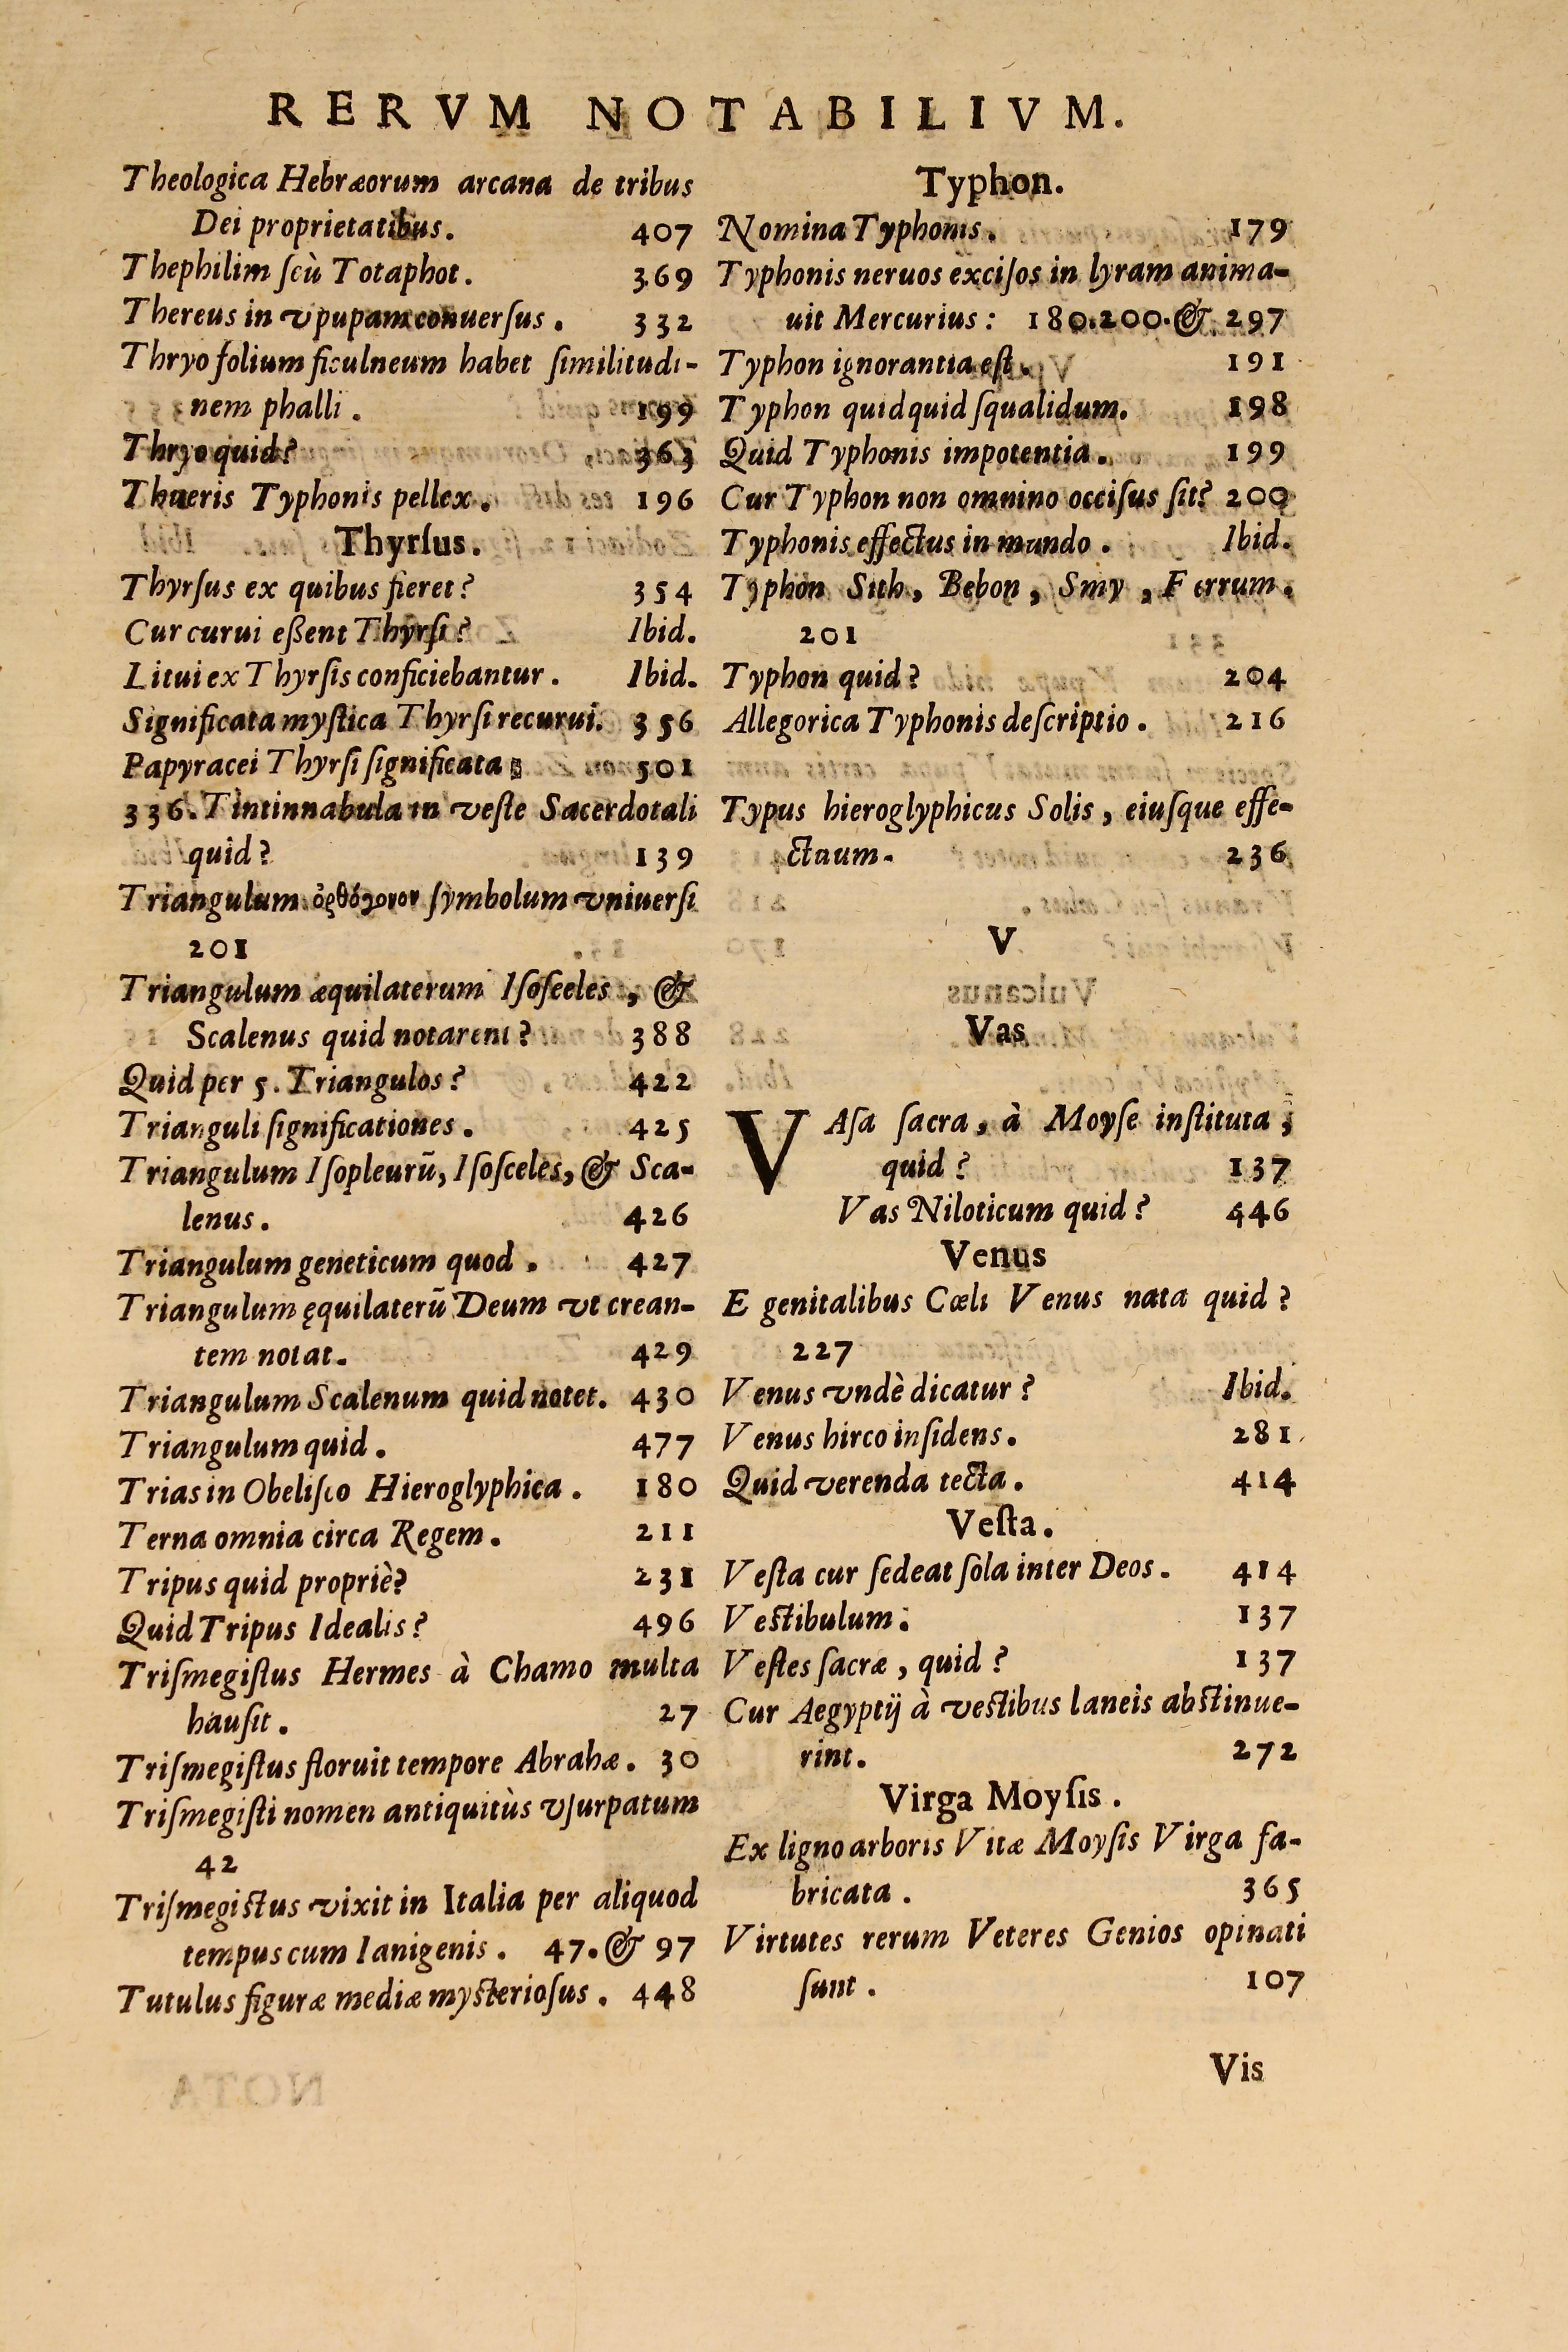 RERVM NOTABILIVM.
Theologica Hebræorum arcana de tribus
Dei proprietatibus. 407
Thephilim ſeù Totaphot. 369
Thereus in vpupam conuerſus. 332
Thryo folium ficulneum habet ſimilitudi-
nem phalli. 199
Thryo quid? 363
Thueris Typhonis pellex. 196
Thyrſus.
Thyrſus ex quibus fieret? 354
Cur curui eßent Thyrſi? Ibid.
Litui ex Thyrſis conficiebantur. Ibid.
Significata myſtica Thyrſi recurui. 356
Papyracei Thyrſi ſignificata 501
336. Tintinnabula in veſte Sacerdotali
quid? 139
Triangulum ὀρθόγονον ſymbolum vniuerſi
201
Triangulum æquilaterum Iſoſeeles, &
Scalenus quid notarent? 388
Quid per 5. Triangulos? 422
Trianguli ſignificationes. 425
Triangulum Iſopleurũ, Iſoſceles, & Sca-
lenus. 426
Triangulum geneticum quod. 427
Triangulum ęquilaterũ Deum vt crean-
tem notat. 429
Triangulum Scalenum quid notet. 430
Triangulum quid. 477
Trias in Obeliſco Hieroglyphica. 180
Terna omnia circa Regem. 211
Tripus quid propriè? 231
Quid Tripus Idealis? 496
Triſmegiſtus Hermes à Chamo multa
hauſit. 27
Triſmegiſtus floruit tempore Abrahæ. 30
Triſmegiſti nomen antiquitùs vſurpatum
42
Triſmegiſtus vixit in Italia per aliquod
tempus cum Ianigenis. 47. & 97
Tutulus figuræ mediæ myſterioſus. 448
Typhon.
Nomina Typhonis. 179
Typhonis neruos exciſos in lyram anima-
uit Mercurius: 180.200.& 297
Typhon ignorantia eſt. 191
Typhon quidquid ſqualidum. 198
Quid Typhonis impotentia. 199
Cur Typhon non omnino occiſus ſit? 200
Typhonis effectus in mundo. Ibid.
Typhon Sith, Bebon, Smy, Ferrum.
201
Typhon quid? 204
Allegorica Typhonis deſcriptio. 216
Typus hieroglyphicus Solis, eiuſque effe-
ctuum. 236
V
Vas
VAſa ſacra, à Moyſe inſtituta;
quid? 137
Vas Niloticum quid? 446
Venus
E genitalibus Cœli Venus nata quid?
227
Venus vndè dicatur? Ibid.
Venus hirco inſidens. 281
Quid verenda tecta. 414
Veſta.
Veſta cur ſedeat ſola inter Deos. 414
Veſtibulum. 137
Veſtes ſacræ, quid? 137
Cur Aegyptij à veſtibus laneis abſtinue-
rint. 272
Virga Moyſis.
Ex ligno arboris Vitæ Moyſis Virga fa-
bricata. 365
Virtutes rerum Veteres Genios opinati
ſunt. 107
Vis